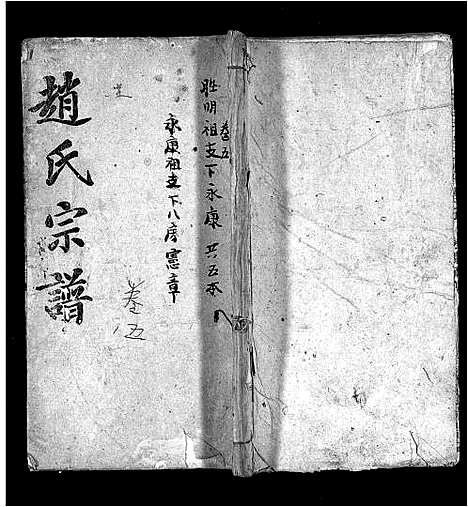 趙氏宗譜
卷五
永康祖支下八房憲章
卷五
胜明祖支下永康 共五本